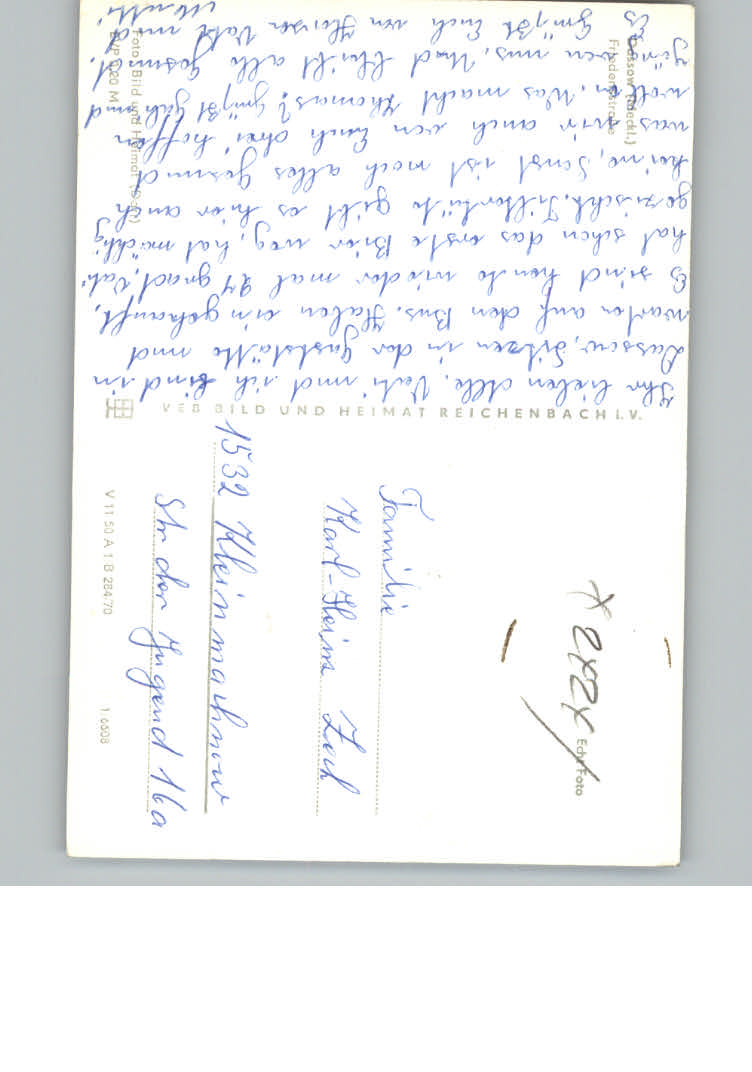 Ihr lieben Alle, Vati und ich sind in
Dassow, Sitzen in der Gaststätte und
warten auf den Bus. Haben eingekauft,
Es sind heute wieder mal 24 grad, Vati
hat schon das erste Bier weg, hat mächtig
gezischt. Filtertüte gibt es hier auch
keine, Sonst ist noch alles gesund
was wir auch von Euch drei hoffen
wollen. Was macht Thomas? Grüßt Gabi und
von uns. Und bleibt alle gesund.
Es Grüßt Euch von Herzen Vati und
Mutti
Dassow (Meckl.)
Friedensstraße
Foto: Bild und Heimat
EVP 0,20 M
VEB BILD UND HEIMAT REICHENBACH i. V.
V 11 50 A 1 B 284/70
1 6608
Echt Foto
Familie
Karl-Heinz Zoch
1532 Kleinmachnow
Str der Jugend 16a